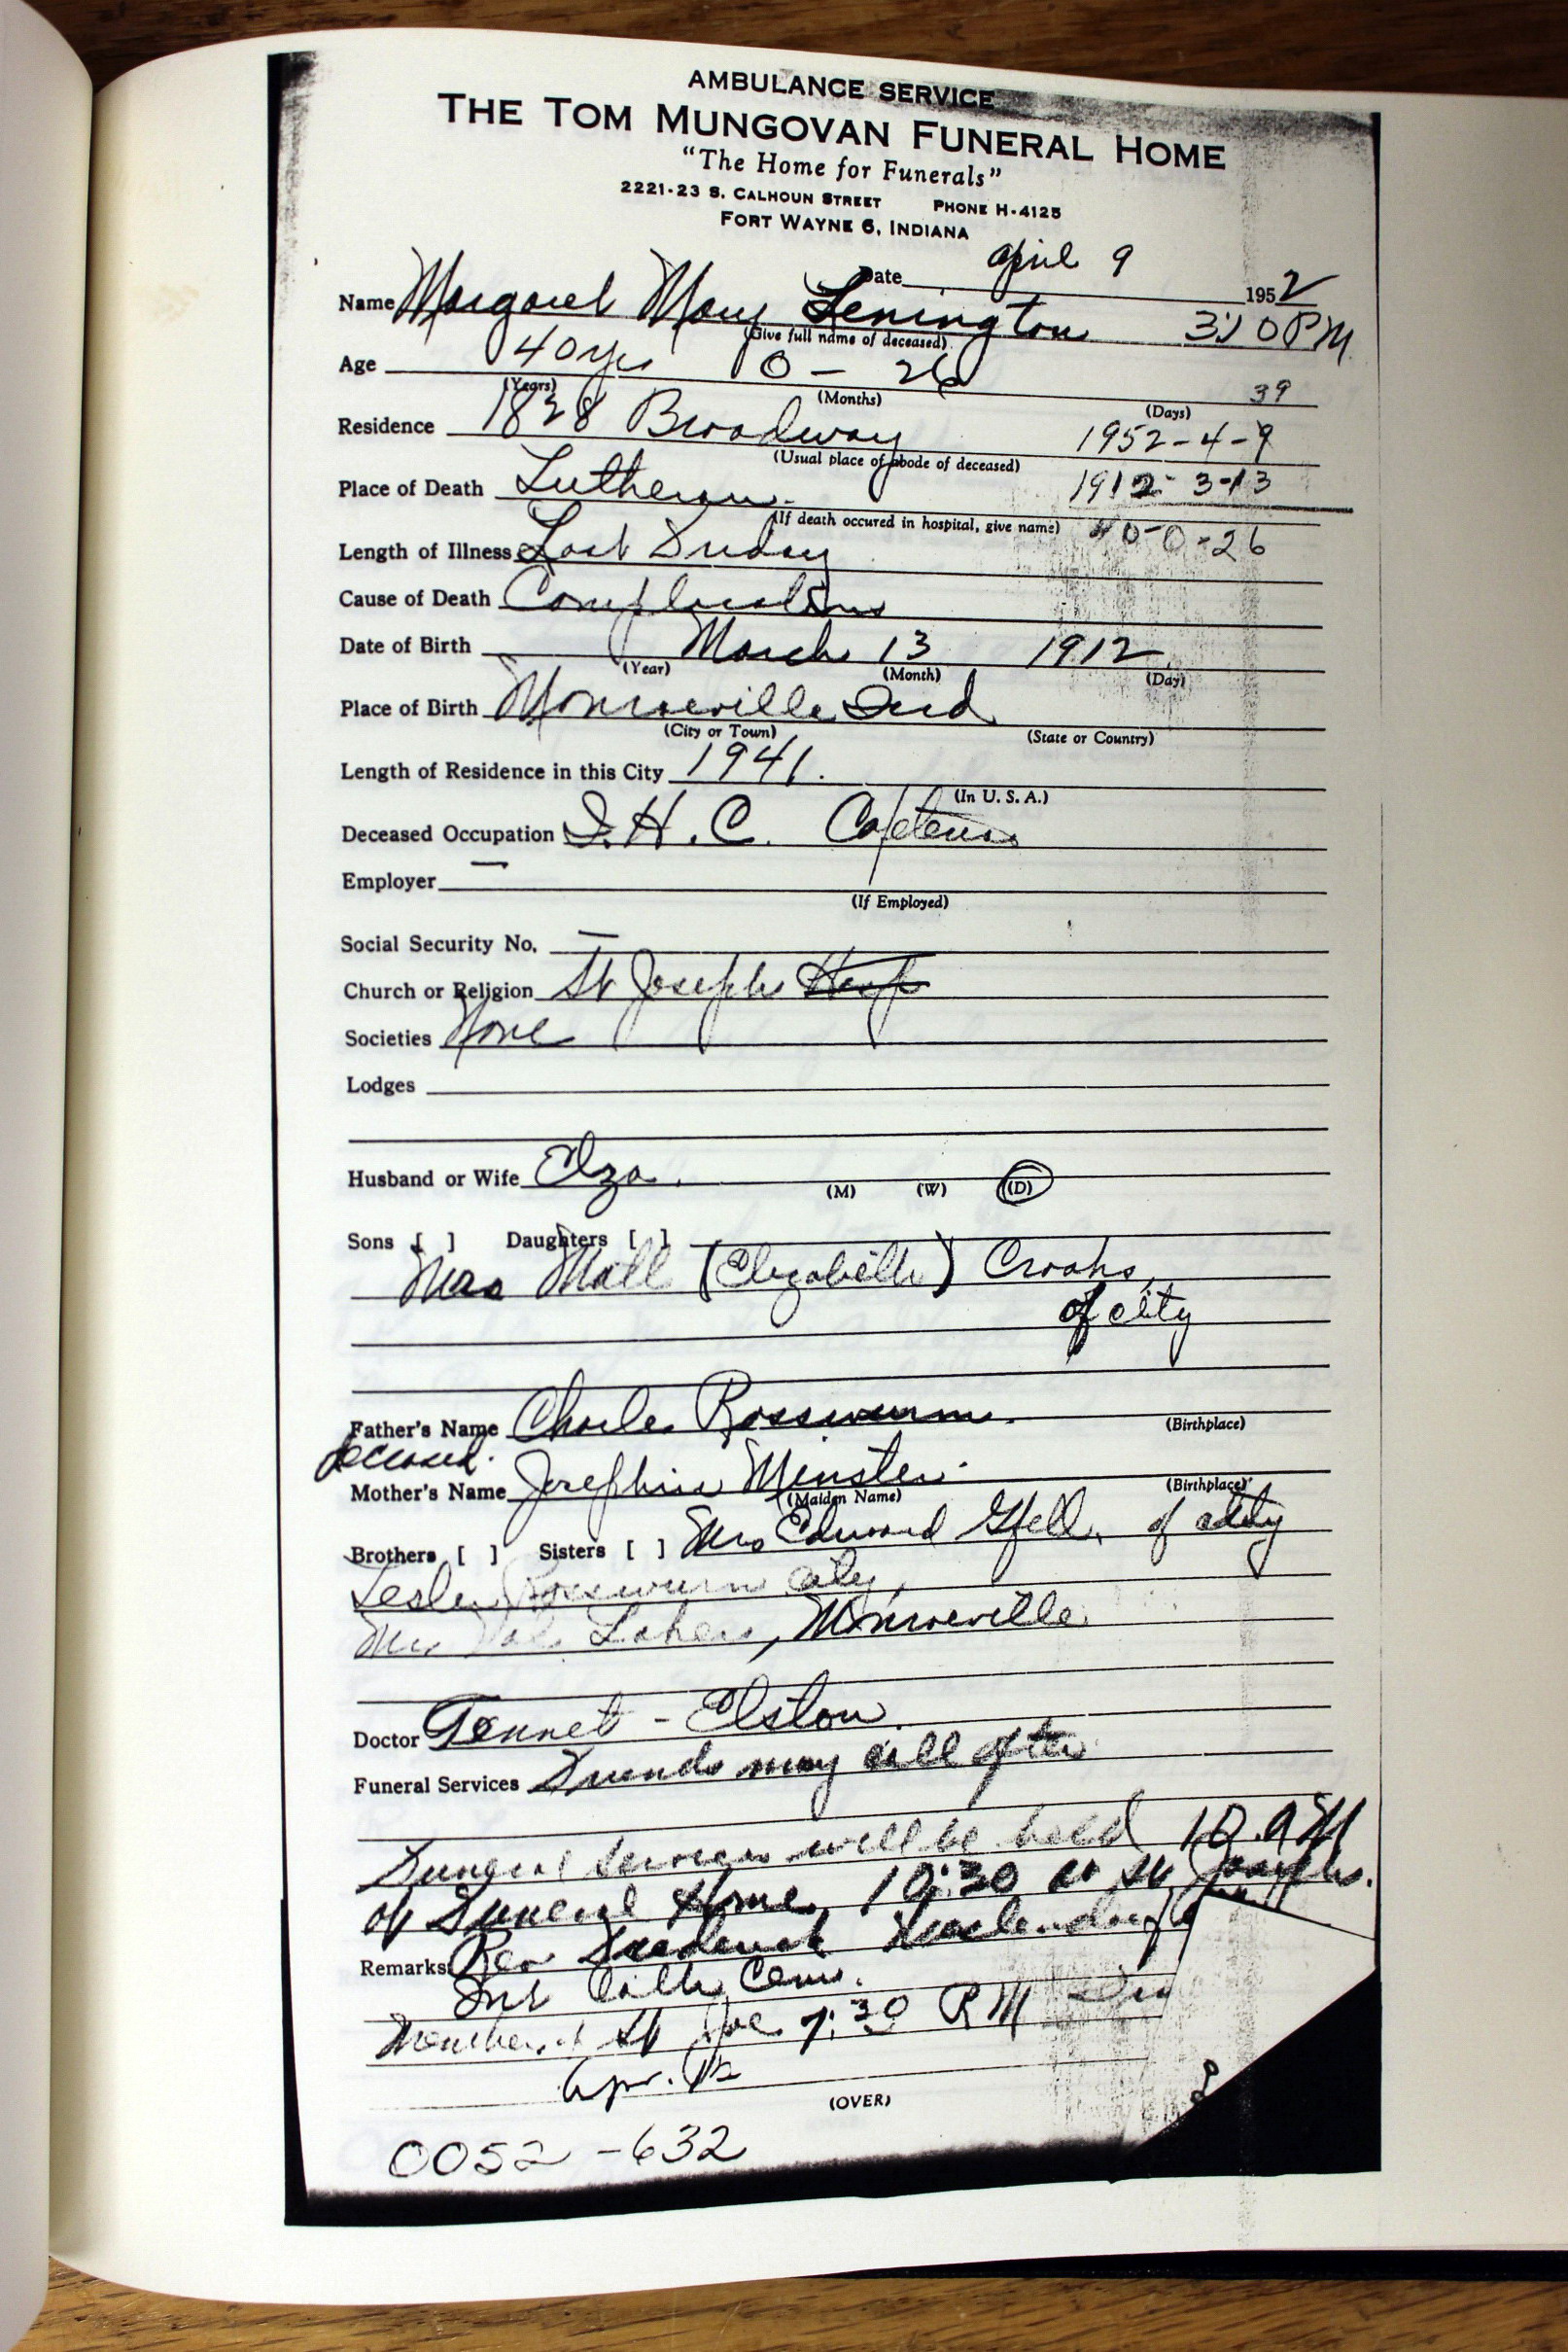 AMBULANCE SERVICE
THE TOM MUNGOVAN FUNERAL HOME
"The Home for Funerals"
2221-23 S. CALHOUN STREET PHONE H-4125
FORT WAYNE 6, INDIANA
Date april 9 1952
Name Margaret Mary Lenington 3:10 PM
(Give full name of deceased)
Age 40 yrs 0 - 26 39
(Years) (Months) (Days)
Residence 1828 Broadway 1952-4-9
(Usual place of abode of deceased)
Place of Death Lutheran 1912-3-13
(If death occured in hospital, give name) 40-0-26
Length of Illness Last Friday
Cause of Death Complications
Date of Birth March 13 1912
(Year) (Month) (Day)
Place of Birth Monroeville Ind
(City or Town) (State or Country)
Length of Residence in this City 1941.
(In U. S. A.)
Deceased Occupation I.H.C. Cafeteria
Employer —
(If Employed)
Social Security No. —
Church or Religion St Joseph Hosp
Societies None
Lodges
Husband or Wife Elza. (M) (W) (D)
Sons [ ] Daughters [ ]
Mrs (Elizabeth)
of city
Father's Name Charles Rosswurm. (Birthplace)
deceased.
Mother's Name Josephine Minster. (Birthplace)
(Maiden Name)
Brothers [ ] Sisters [ ] Mrs Edward Gfell, of city
Leslie Rosswurm city,
Mrs Monroeville
Doctor Tennet - Elston.
Funeral Services Friends may call after
Funeral Services will be held 10 AM
at Funeral Home, 10:30 at St Joseph.
Remarks: Rev Frederick
Int Cath Cem.
Member of St Joe 7:30 PM
Apr. 12
(OVER)
0052-632